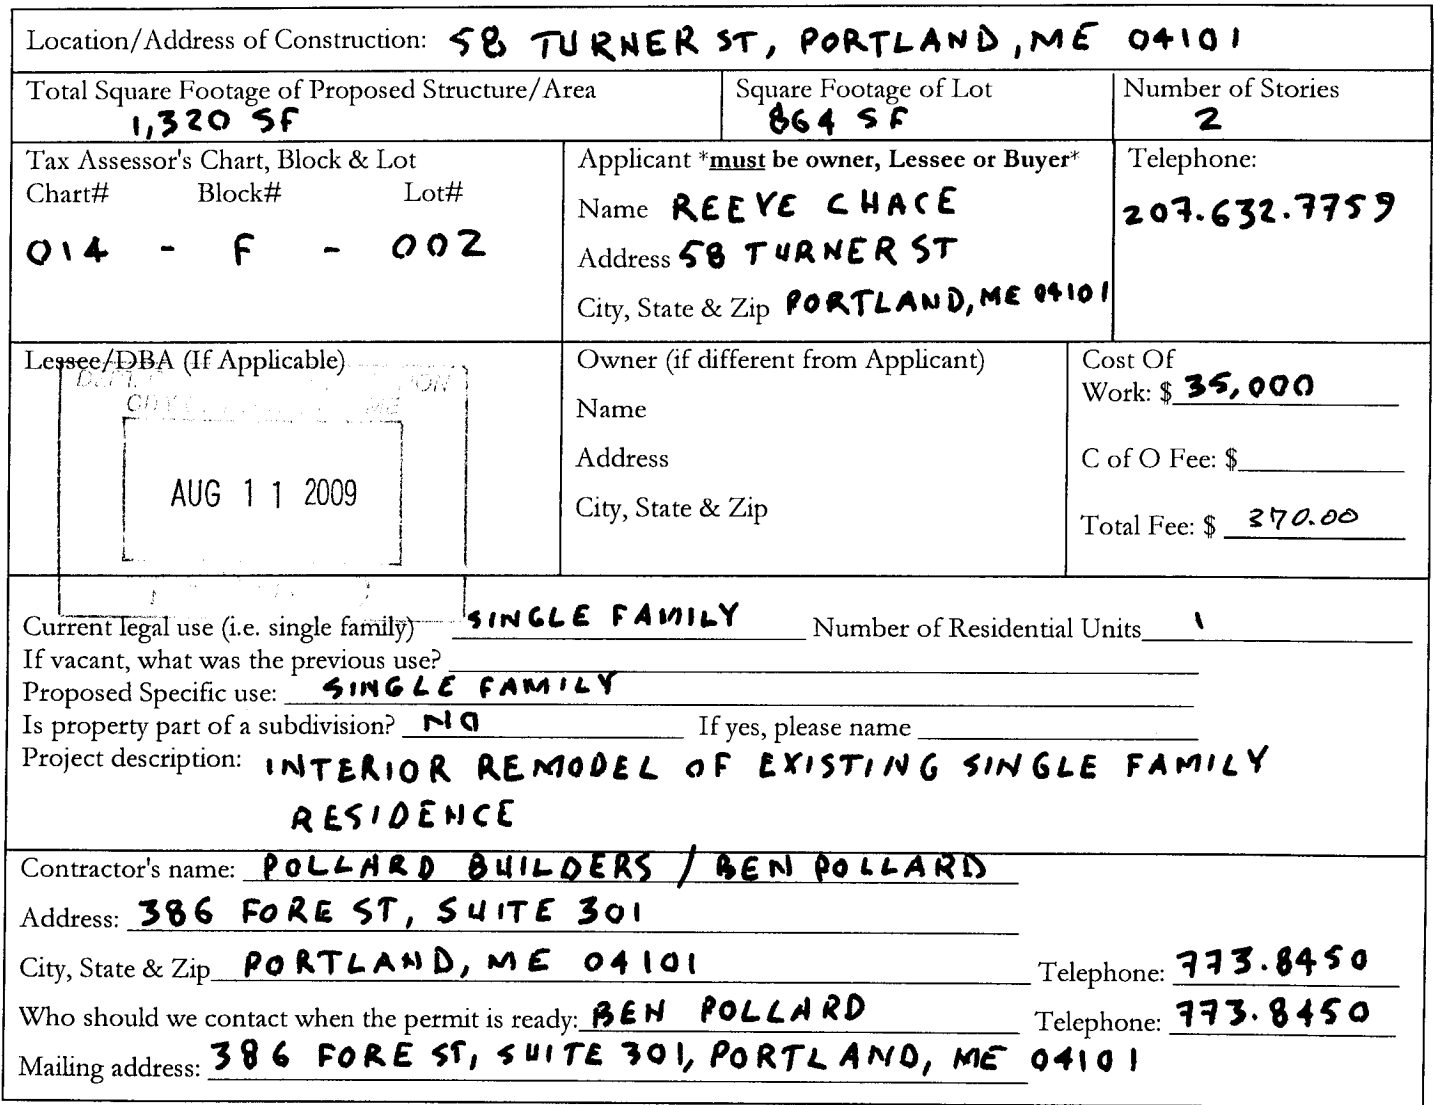 Location/Address of Construction: 58 TURNER ST, PORTLAND, ME 04101
Total Square Footage of Proposed Structure/Area Square Footage of Lot Number of Stories
1,320 SF 864 SF 2
Tax Assessor's Chart, Block & Lot Applicant *must be owner, Lessee or Buyer* Telephone:
Chart# Block# Lot# Name REEVE CHACE 207.632.7759
014 - F - 002 Address 58 TURNER ST
City, State & Zip PORTLAND, ME 04101
Lessee/DBA (If Applicable) Owner (if different from Applicant) Cost Of
Name Work: $ 35,000
Address C of O Fee: $
AUG 11 2009
City, State & Zip Total Fee: $ 370.00
Current legal use (i.e. single family) SINGLE FAMILY Number of Residential Units 1
If vacant, what was the previous use?
Proposed Specific use: SINGLE FAMILY
Is property part of a subdivision? NO If yes, please name
Project description: INTERIOR REMODEL OF EXISTING SINGLE FAMILY
RESIDENCE
Contractor's name: POLLARD BUILDERS / BEN POLLARD
Address: 386 FORE ST, SUITE 301
City, State & Zip PORTLAND, ME 04101 Telephone: 773.8450
Who should we contact when the permit is ready: BEN POLLARD Telephone: 773.8450
Mailing address: 386 FORE ST, SUITE 301, PORTLAND, ME 04101